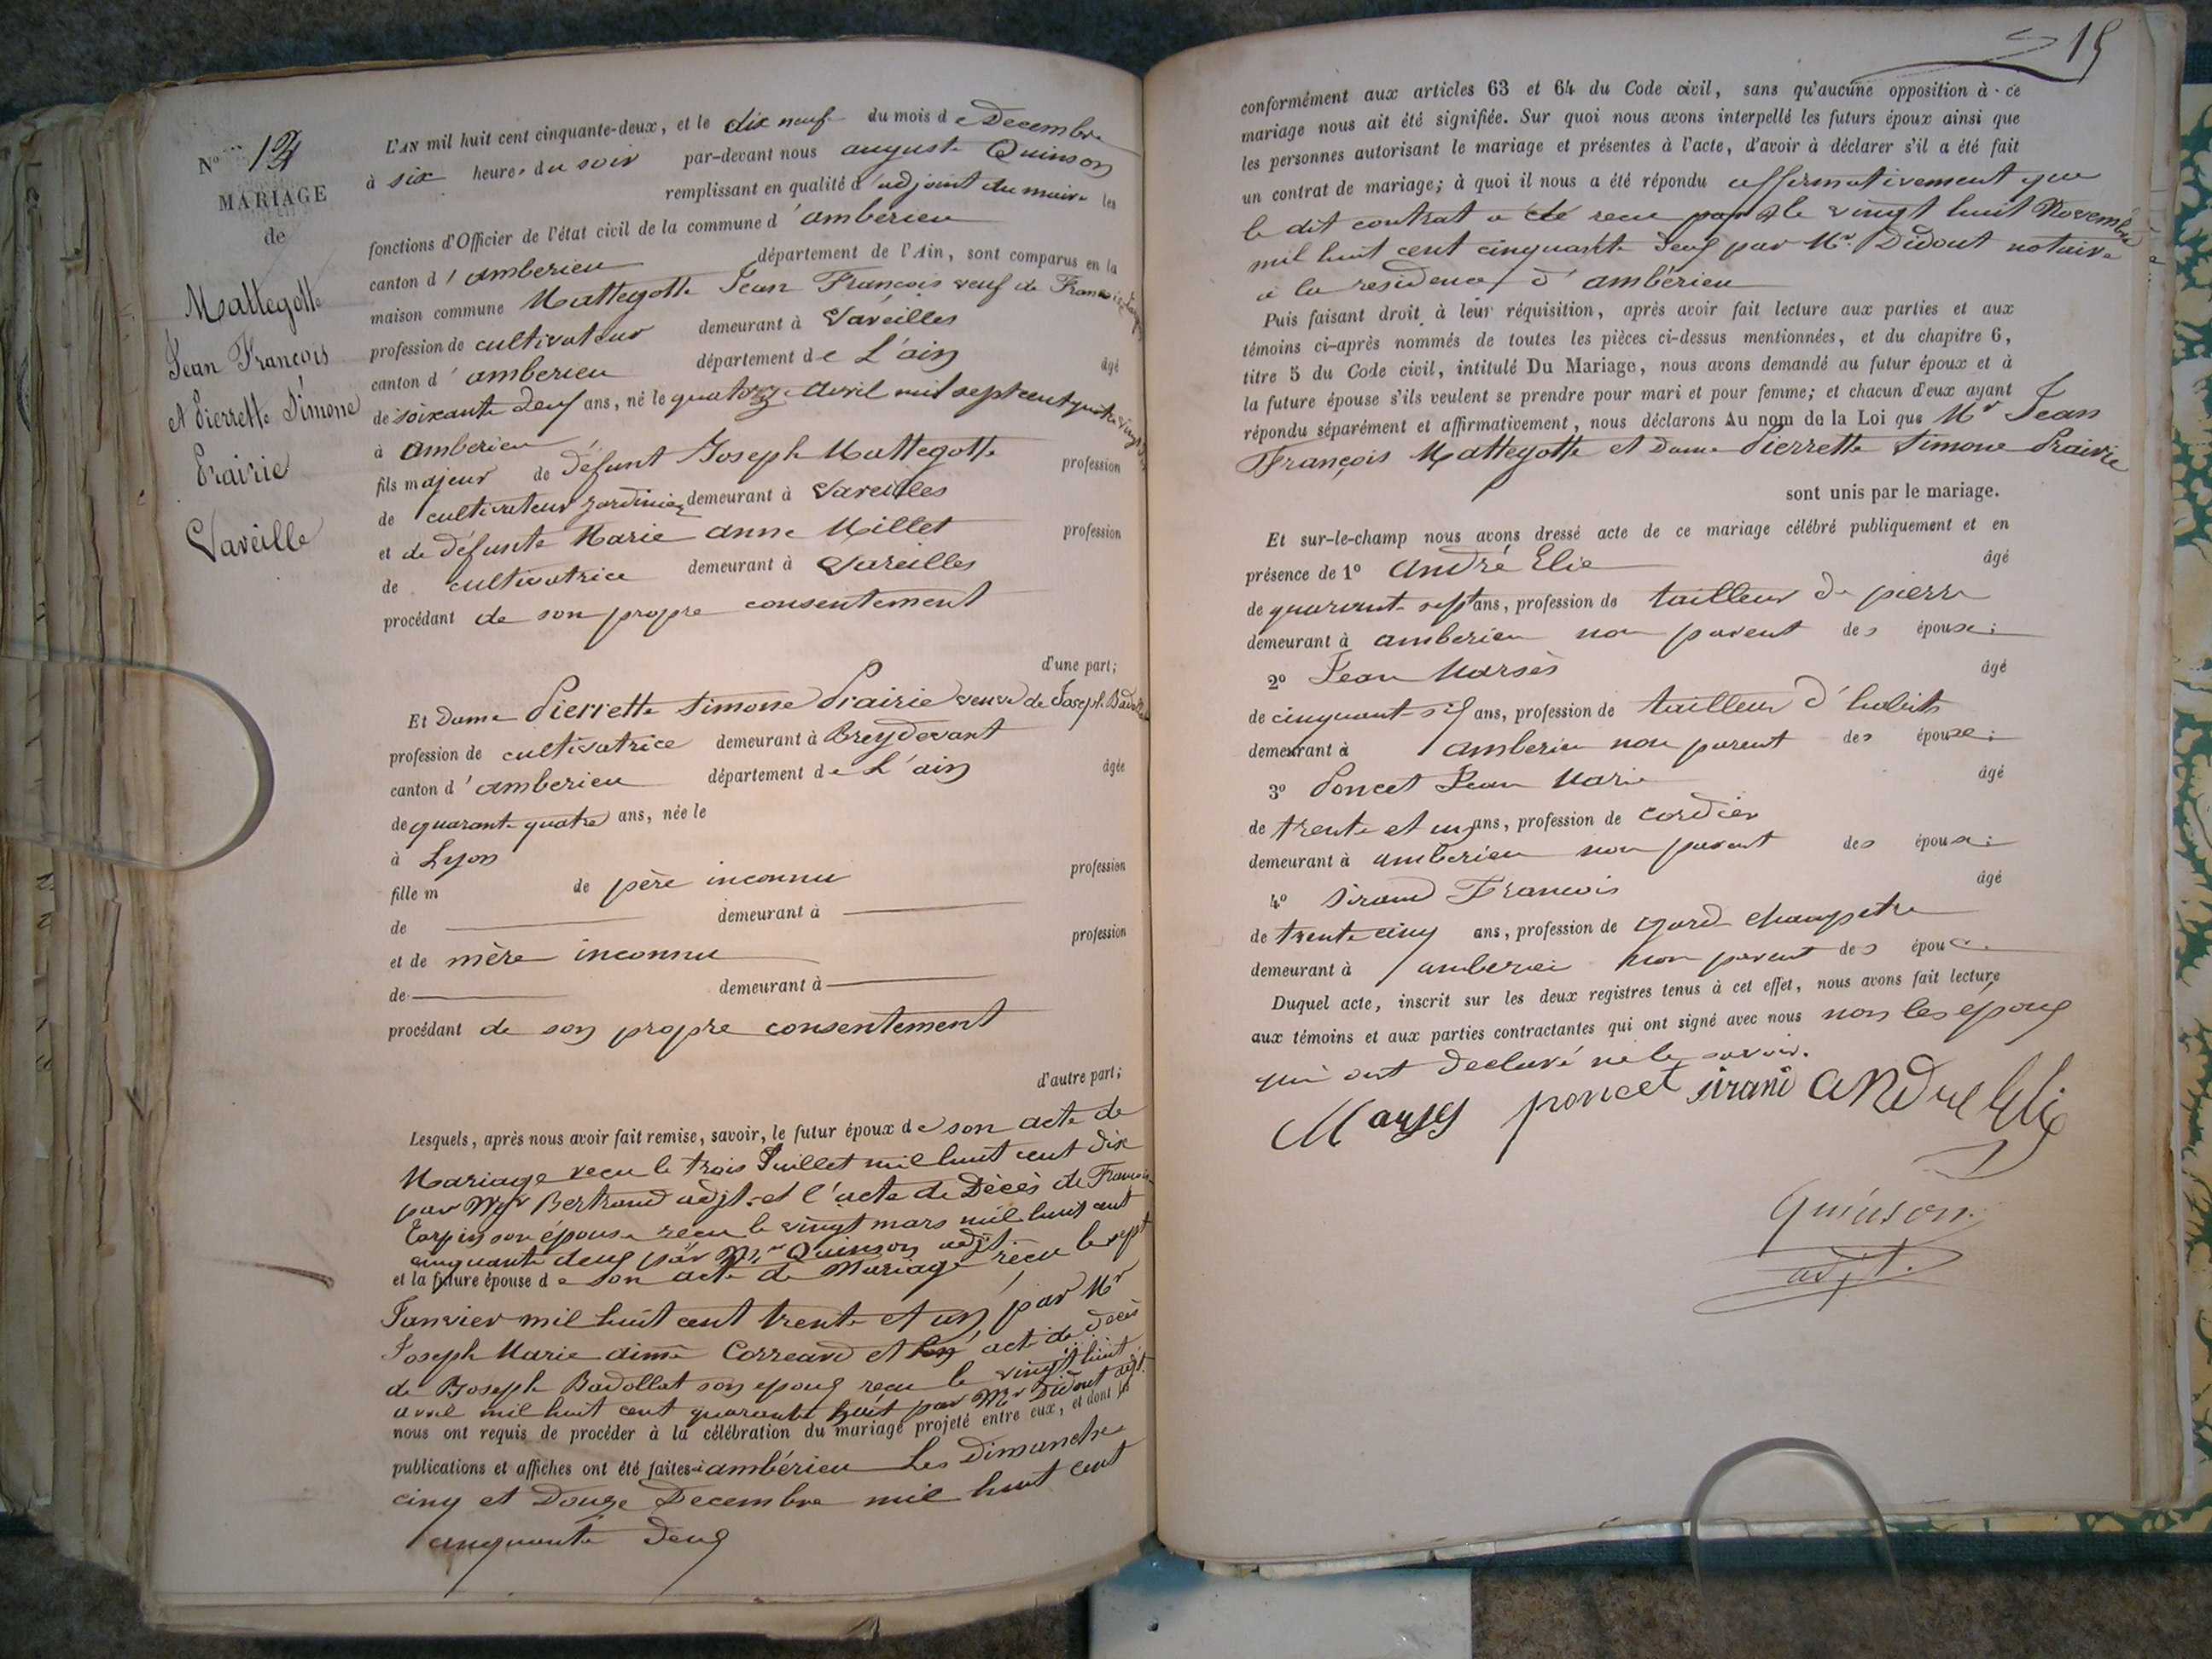 No 14
MARIAGE
de
Mattegotte
Jean François
et Pierrette Simone
Prairie
Vareille
L'AN mil huit cent cinquante-deux, et le dix neuf du mois de Decembre
à six heures du soir par-devant nous auguste Quinson
remplissant en qualité d'adjoint du maire les
fonctions d'Officier de l'état civil de la commune d'ambérieu
canton d'amberieu département de l'Ain, sont comparus en la
maison commune Mattegotte Jean François veuf de
profession de cultivateur demeurant à Vareilles
canton d'amberieu département de L'ain âgé
de soixante deux ans, né le quatorze avril mil sept cent quatre vingt
à amberieu
fils majeur de défunt Joseph Mattegotte profession
de cultivateur jardinier demeurant à Vareilles
et de défunte Marie anne Millet profession
de cultivatrice demeurant à Vareilles
procédant de son propre consentement
d'une part;
Et Dame Pierrette Simone Prairie veuve de Joseph
profession de cultivatrice demeurant à Breydevant
canton d'amberieu département de L'ain âgée
de quarante quatre ans, née le
à Lyon
fille m de père inconnu profession
de demeurant à
et de mère inconnu profession
de demeurant à
procédant de son propre consentement
d'autre part;
Lesquels, après nous avoir fait remise, savoir, le futur époux de son acte de
Mariage recu le trois Juillet mil huit cent dix
par Bertrand adjt. et l'acte de Dècès de
son épouse recu le vingt mars mil huit cent
cinquante deux par Mr Quinson adjt.
et la future épouse de son acte de Mariage recu le sept
Janvier mil huit cent trente et un par Mr
Joseph Marie aimé Correard et acte de decès
de Joseph Badollat son epoux recu le vingt huit
avril mil huit cent quarante huit par Mr Didout adjt.
nous ont requis de procéder à la célébration du mariage projeté entre eux, et dont les
publications et affiches ont été faites à ambérieu Les Dimanche
cinq et Douze Decembre mil huit cent
cinquante deux
15
conformément aux articles 63 et 64 du Code civil, sans qu'aucune opposition à ce
mariage nous ait été signifiée. Sur quoi nous avons interpellé les futurs époux ainsi que
les personnes autorisant le mariage et présentes à l'acte, d'avoir à déclarer s'il a été fait
un contrat de mariage; à quoi il nous a été répondu affirmativement que
le dit contrat a été recu le vingt huit Novembre
mil huit cent cinquante deux par Mr Didout notaire
a la residence d'ambérieu
Puis faisant droit à leur réquisition, après avoir fait lecture aux parties et aux
témoins ci-après nommés de toutes les pièces ci-dessus mentionnées, et du chapitre 6,
titre 5 du Code civil, intitulé Du Mariage, nous avons demandé au futur époux et à
la future épouse s'ils veulent se prendre pour mari et pour femme; et chacun d'eux ayant
répondu séparément et affirmativement, nous déclarons Au nom de la Loi que Mr Jean
François Mattegotte et Dame Pierrette Simone Prairie
sont unis par le mariage.
Et sur-le-champ nous avons dressé acte de ce mariage célébré publiquement et en
présence de 1º André Elie âgé
de quarante sept ans, profession de tailleur de pierre
demeurant à amberieu non parent des épouse;
2º Jean Marsès âgé
de cinquante six ans, profession de tailleur d'habits
demeurant à amberieu non parent des épouse;
3º Poncet Jean Marie âgé
de trente et un ans, profession de cordier
demeurant à amberieu non parent des épouse;
4º Sirand Francois âgé
de trente cinq ans, profession de gard champetre
demeurant à amberieu non parent des épou
Duquel acte, inscrit sur les deux registres tenus à cet effet, nous avons fait lecture
aux témoins et aux parties contractantes qui ont signé avec nous non les époux
qui ont declaré ne le savoir.
poncet sirand ANDRE Elie
Quinson
adjt.